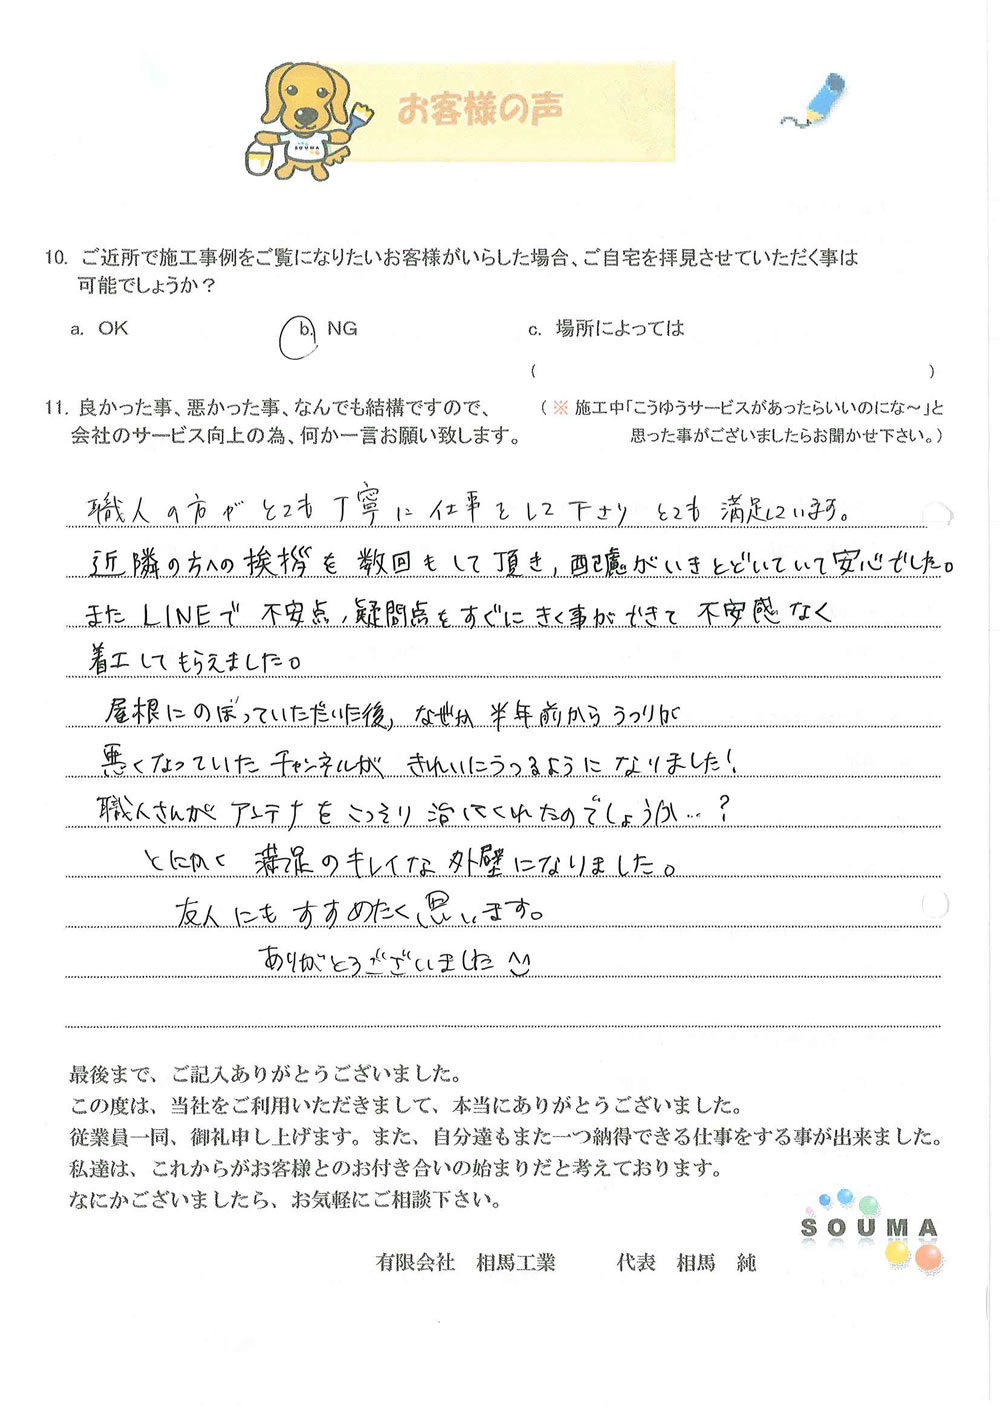 お客様の声
SOUMA
10. ご近所で施工事例をご覧になりたいお客様がいらした場合、ご自宅を拝見させていただく事は
可能でしょうか？
a. OK b. NG c. 場所によっては
( )
11. 良かった事、悪かった事、なんでも結構ですので、 （ ※ 施工中「こうゆうサービスがあったらいいのにな～」と
会社のサービス向上の為、何か一言お願い致します。 思った事がございましたらお聞かせ下さい。）
職人の方がとても丁寧に仕事をして下さりとても満足しています。
近隣の方への挨拶を数回もして頂き,配慮がいきとどいていて安心でした。
またLINEで不安点,疑問点をすぐにきく事ができて不安感なく
着工してもらえました。
屋根にのぼっていただいた後,なぜか半年前からうつりが
悪くなっていたチャンネルがきれいにうつるようになりました!
職人さんがアンテナをこっそり治してくれたのでしょうか…?
とにかく満足のキレイな外壁になりました。
友人にもすすめたく思います。
ありがとうございました
最後まで、ご記入ありがとうございました。
この度は、当社をご利用いただきまして、本当にありがとうございました。
従業員一同、御礼申し上げます。また、自分達もまた一つ納得できる仕事をする事が出来ました。
私達は、これからがお客様とのお付き合いの始まりだと考えております。
なにかございましたら、お気軽にご相談下さい。
SOUMA
有限会社 相馬工業 代表 相馬 純